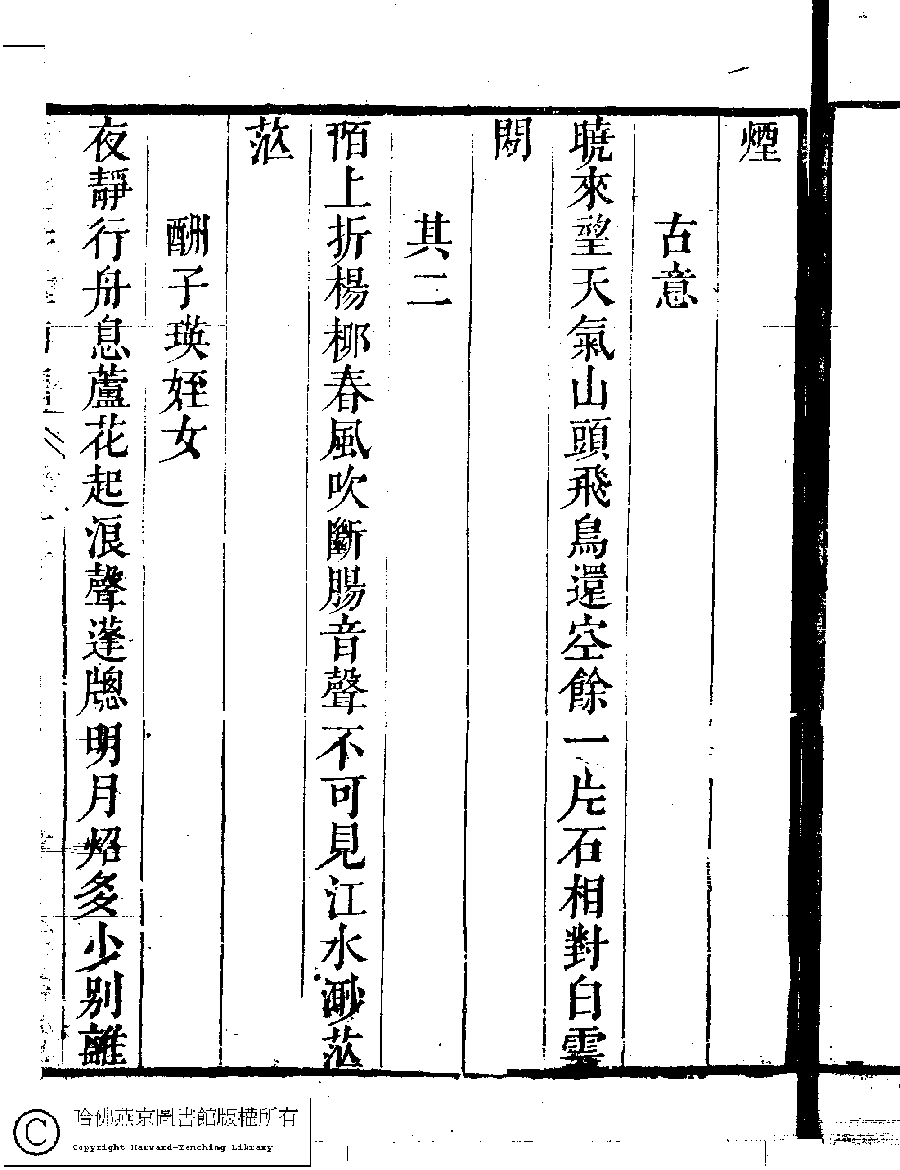 煙
古意
曉來望天氣山頭飛鳥還空餘一片石相對白雲
閒
其二
陌上折楊柳春風吹斷腸音聲不可見江水渺茫
茫
酬子瑛姪女
夜靜行舟息蘆花起浪聲蓬牕明月炤多少別離
哈佛燕京圖書館版權所有
Copyright Harvard-Yenching Library